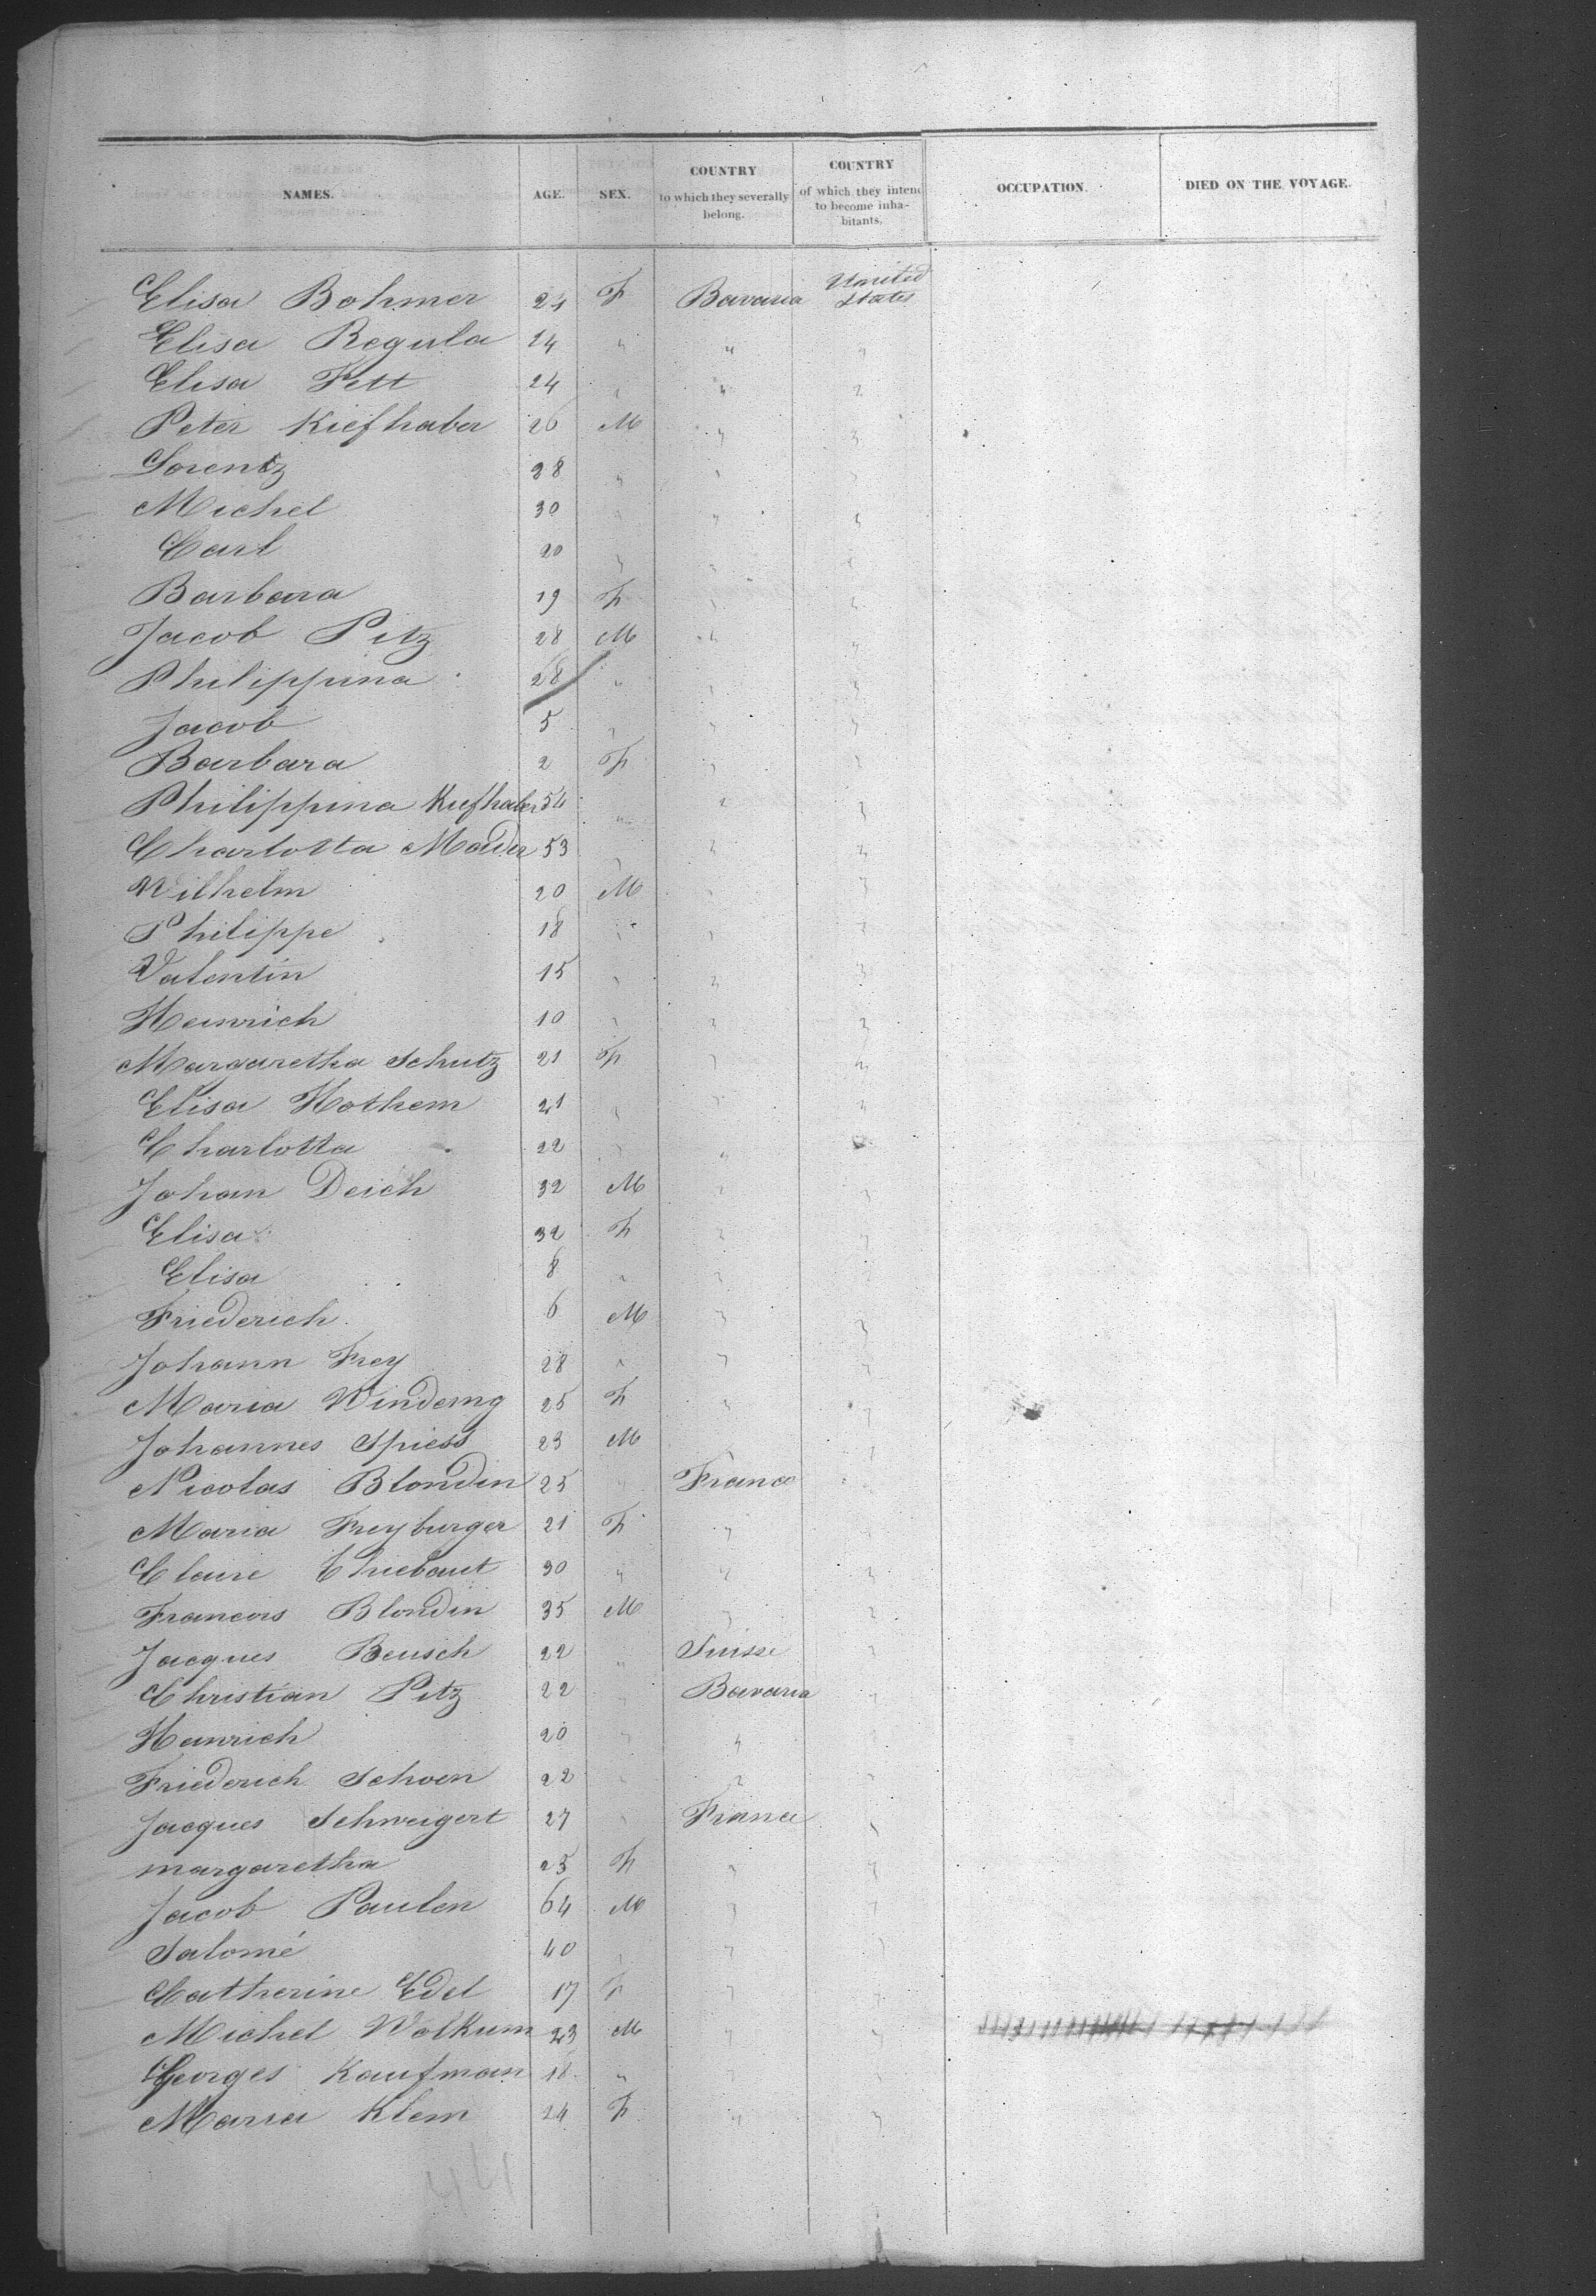 NAMES. AGE. SEX. COUNTRY to which they severally belong. COUNTRY of which they intend to become inhabitants. OCCUPATION. DIED ON THE VOYAGE.
Elisa Bohmer 24 F Bavaria United States
Elisa Regula 24 " " "
Elisa Fett 24 " " "
Peter Kiefhaber 26 M " "
Lorentz 28 " " "
Michel 30 " " "
Carl 20 " " "
Barbara 19 F " "
Jacob Pitz 28 M " "
Philippina 28 " " "
Jacob 5 " " "
Barbara 2 F " "
Philippina Kiefhaber 54 " " "
Charlotta Mader 53 " " "
Wilhelm 20 M " "
Philippe 18 " " "
Valentin 15 " " "
Heinrich 10 " " "
Margaretha Schutz 21 F " "
Elisa Hothem 21 " " "
Charlotta 22 " " "
Johan Deich 32 M " "
Elisa 32 F " "
Elisa 8 " " "
Friederich 6 M " "
Johann Frey 28 " " "
Maria 25 F " "
Johannes Spiess 23 M " "
Nicolas Blondin 25 " France "
Maria Freyburger 21 F " "
Claire Thiebaut 30 " " "
Francois Blondin 35 M " "
Jacques Beusch 22 " Suisse "
Christian Pitz 22 " Bavaria "
Heinrich 20 " " "
Friederich Schoen 22 " " "
Jacques Schweigert 27 " France "
margaretha 25 F " "
Jacob Paulen 64 M " "
Salomé 40 " " "
Catherine Edel 17 F " "
Michel Wolkum 23 M " "
Georges Kaufman 18 " " "
Maria Klem 24 F " "